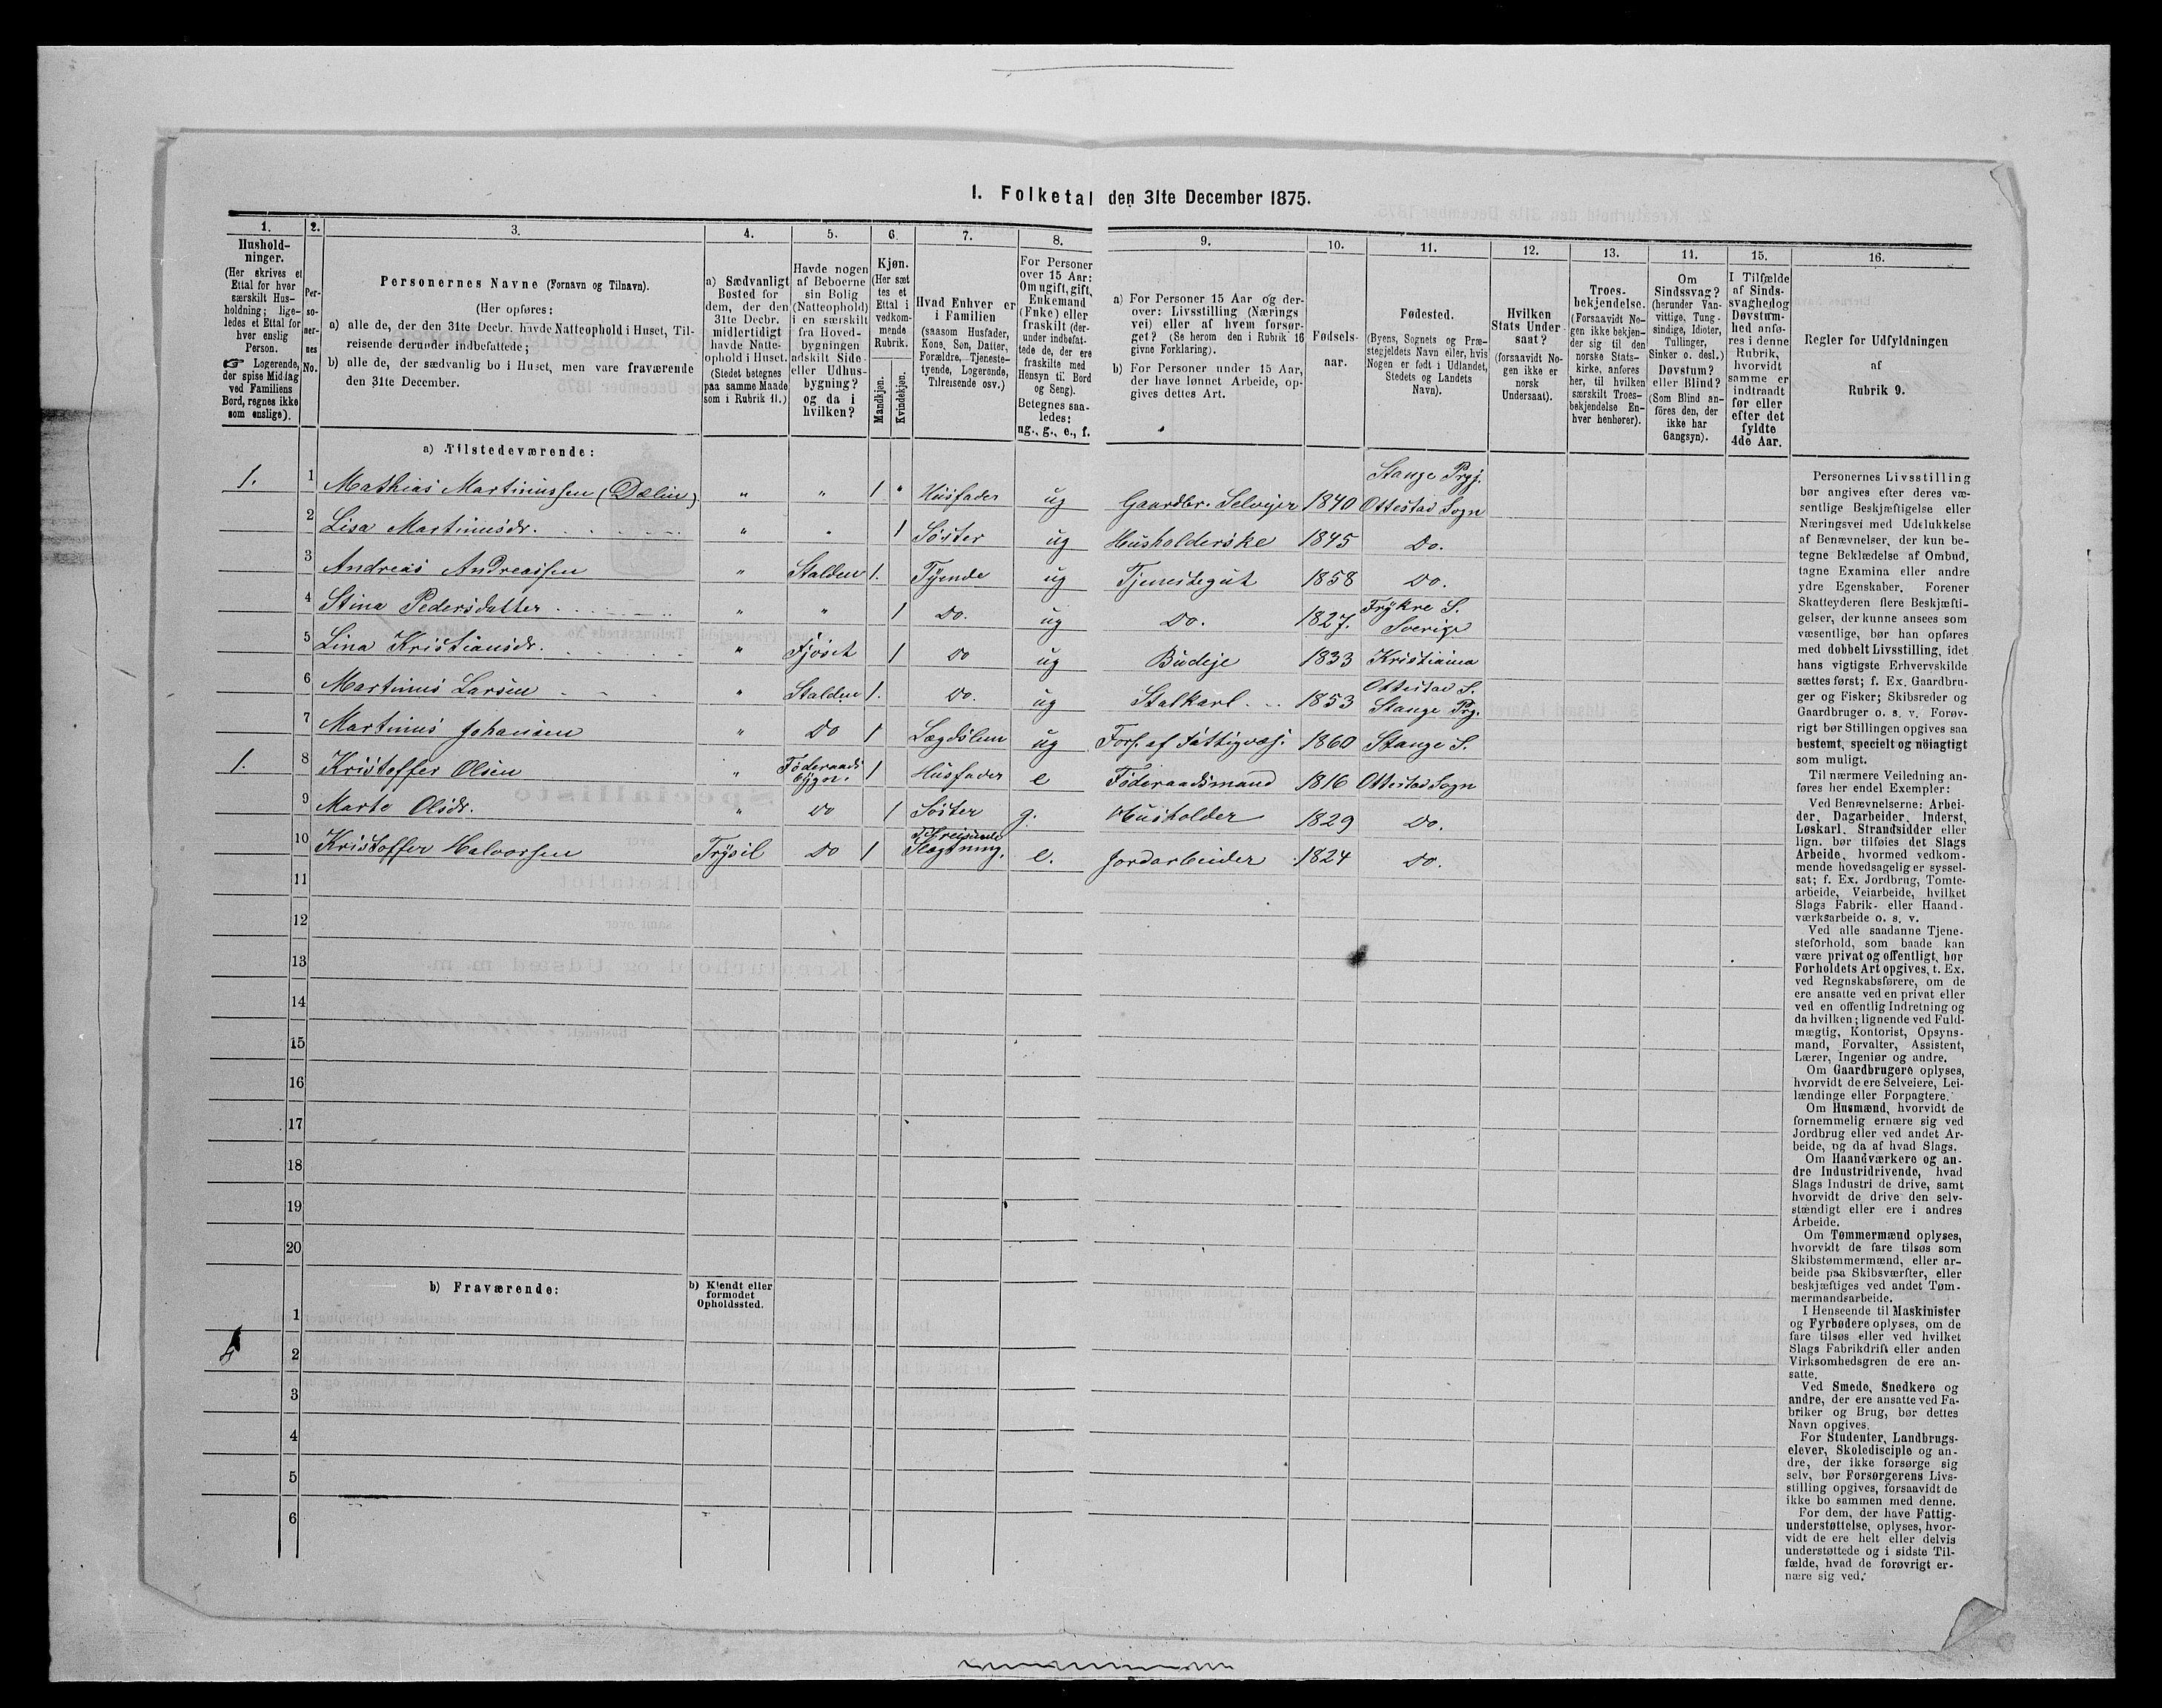 I. Folketal den 31te December 1875.
1. 2. 3. 4. 5. 6. 7. 8. 9. 10. 11. 12. 13. 14. 15. 16.
Hushold-
ninger.
(Her skrives et
Ettal for hver
særskilt Hus-
holdning; lige-
ledes et Ettal for
hver enslig
Person.
☞ Logerende,
der spise Middag
ved Familiens
Bord, regnes ikke
som enslige).
Per-
so-
ner-
nes
No.
Personernes Navne (Fornavn og Tilnavn).
(Her opføres:
a) alle de, der den 31te Decbr. havde Natteophold i Huset, Til-
reisende derunder indbefattede;
b) alle de, der sædvanlig bo i Huset, men vare fraværende
den 31te December.
a) Sædvanligt
Bosted for
dem, der den
31te Decbr.
midlertidigt
havde Natte-
ophold i Huset.
(Stedet betegnes
paa samme Maade
som i Rubrik 11.)
Havde nogen
af Beboerne
sin Bolig
(Natteophold)
i en særskilt
fra Hoved-
bygningen
adskilt Side-
eller Udhus-
bygning?
og da i
hvilken?
Kjøn.
(Her sæt-
tes et
Ettal i
vedkom-
mende
Rubrik.
Mandkjøn.
Kvindekjøn.
Hvad Enhver er
i Familien
(saasom Husfader,
Kone, Søn, Datter,
Forældre, Tjeneste-
tyende, Logerende,
Tilreisende osv.)
For Personer
over 15 Aar:
Om ugift, gift,
Enkemand
(Enke) eller
fraskilt (der-
under indbefat-
tede de, der ere
fraskilte med
Hensyn til Bord
og Seng).
Betegnes saa-
ledes:
ug., g., e., f.
a) For Personer 15 Aar og der-
over: Livsstilling (Nærings
vei) eller af hvem forsør-
get? (Se herom den i Rubrik 16
givne Forklaring).
b) For Personer under 15 Aar,
der have lønnet Arbeide, op-
gives dettes Art.
Fødsels-
aar.
Fødested.
(Byens, Sognets og Præ-
stegjeldets Navn eller, hvis
Nogen er født i Udlandet,
Stedets og Landets
Navn).
Hvilken
Stats Under-
saat?
(forsaavidt No-
gen ikke er
norsk
Undersaat).
Troes-
bekjendelse.
(Forsaavidt No-
gen ikke bekjen-
der sig til den
norske Stats-
kirke, anføres
her, til hvilken
særskilt Troes-
bekjendelse En-
hver henhører).
Om
Sindssvag?
(herunder Van-
vittige, Tung-
sindige, Idioter,
Tullinger,
Sinker o. desl.)
Døvstum?
eller Blind?
(Som Blind an-
föres den, der
ikke har
Gangsyn).
I Tilfælde
af Sinds-
svaghed og
Døvstum-
hed anfø-
res i denne
Rubrik,
hvorvidt
samme er
indtraadt
før eller
efter det
fyldte
4de Aar.
Regler for Udfyldningen
af
Rubrik 9.
a) Tilstedeværende:
1. 1 Mathias Martinussen (Dælin) " " 1 " Husfader ug Gaardbr. Selveyer 1840 Stange Prgj. Ottestad Sogn
2 Lisa Martinusdr. " " 1 Søster ug Husholderske 1845 Do.
3 Andreas Andreassen " Stalden 1. Tyende ug Tjenestegut 1858 Do.
4 Stina Pedersdatter " " 1 Do. ug Do. 1827. Frykre S. Sverige
5 Lina Kristiansdr. " Fjöset 1 Do ug Budeje 1833 Kristiania
6 Martinus Larsen " Stalden 1. Do. ug Stalkarl 1853 Ottestad S. Stange Prg.
7 Martinus Johansen " Do 1 Lægdslem ug Fors. af Fattigvæs. 1860 Stange S.
1. 8 Kristoffer Olsen " Föderaads bygn. 1 Husfader e Föderaadsmand 1816 Ottestad Sogn
9 Marte Olsdr. " Do 1 Söster g. Husholder 1829 Do.
10 Kristoffer Halvorsen Trysil Do 1 Tilreisende Slægtning. e. Jordarbeider 1824 Do.
11
12
13
14
15
16
17
18
19
20
b) Fraværende:
b) Kjendt eller
formodet
Opholdssted.
1
2
3
4
5
6
Personernes Livsstilling
bør angives efter deres væ-
sentlige Beskjæftigelse eller
Næringsvei med Udelukkelse
af Benævnelser, der kun be-
tegne Beklædelse af Ombud,
tagne Examina eller andre
ydre Egenskaber. Forener
Skatteyderen flere Beskjæfti-
gelser, der kunne ansees som
væsentlige, bør han opføres
med dobbelt Livsstilling, idet
hans vigtigste Erhvervskilde
sættes først; f. Ex. Gaardbru-
ger og Fisker; Skibsreder og
Gaardbruger o. s. v. Forøv-
rigt bør Stillingen opgives saa
bestemt, specielt og nöiagtigt
som muligt.
Til nærmere Veiledning an-
føres her endel Exempler:
Ved Benævnelserne: Arbei-
der, Dagarbeider, Inderst,
Løskarl, Strandsidder eller
lign. bør tilføies det Slags
Arbeide, hvormed vedkom-
mende hovedsagelig er syssel-
sat; f. Ex. Jordbrug, Tomte-
arbeide, Veiarbeide, hvilket
Slags Fabrik- eller Haand-
værksarbeide o. s. v.
Ved alle saadanne Tjene-
steforhold, som baade kan
være privat og offentligt, bør
Forholdets Art opgives, t. Ex.
ved Regnskabsførere, om de
ere ansatte ved en privat eller
ved en offentlig Indretning og
da hvilken; lignende ved Fuld-
mægtig, Kontorist, Opsyns-
mand, Forvalter, Assistent,
Lærer, Ingeniør og andre.
Om Gaardbrugere oplyses,
hvorvidt de ere Selveiere, Lei-
lændinge eller Forpagtere.
Om Husmænd, hvorvidt de
fornemmelig ernære sig ved
Jordbrug eller ved andet Ar-
beide, og da af hvad Slags.
Om Haandværkere og an-
dre Industridrivende, hvad
Slags Industri de drive, samt
hvorvidt de drive den selv-
stændigt eller ere i andres
Arbeide.
Om Tømmermænd oplyses,
hvorvidt de fare tilsøs som
Skibstømmermænd, eller ar-
beide paa Skibsværfter, eller
beskjæftiges ved andet Tøm-
mermandsarbeide.
I Henseende til Maskinister
og Fyrbødere oplyses, om de
fare tilsøs eller ved hvilket
Slags Fabrikdrift eller anden
Virksomhedsgren de ere an-
satte.
Ved Smede, Snedkere og
andre, der ere ansatte ved Fa-
briker og Brug, bør dettes
Navn opgives.
For Studenter, Landbrugs-
elever, Skoledisciple og an-
dre, der ikke forsørge sig
selv, bør Forsørgerens Livs-
stilling opgives, forsaavidt de
ikke bo sammen med denne.
For dem, der have Fattig-
understøttelse, oplyses, hvor-
vidt de ere helt eller delvis
understøttede og i sidste Til-
fælde, hvad de forøvrigt er-
nære sig ved.